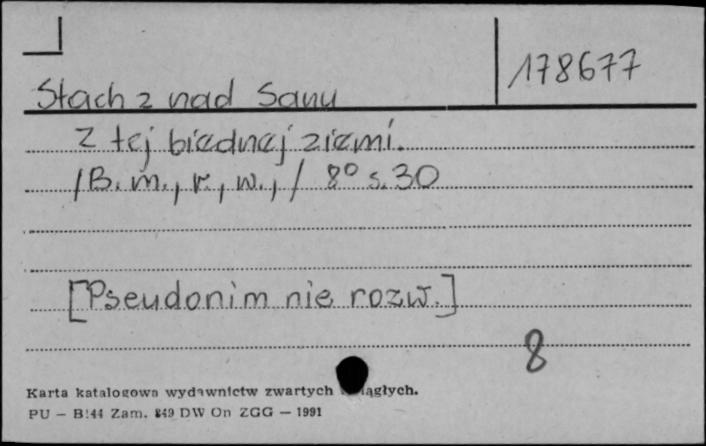 178677
Stach z nad Sanu
Z tej biednej ziemi.
/B. m., r., w.,/ 8° s. 30
[Pseudonim nie rozw.]
8
Karta katalogowa wydawnictw zwartych ciągłych.
PU – B/44 Zam. 849 DW On ZGG – 1991